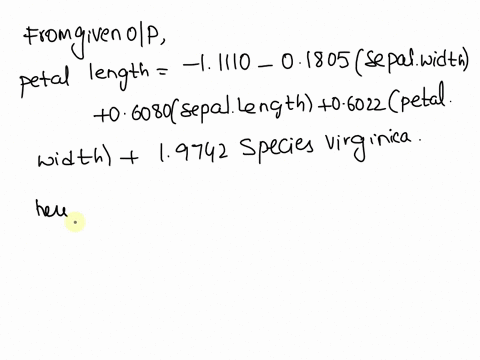 From given O/P,
petal length = -1.1110 - 0.1805 (sepal.width)
+0.6080(sepal.length)+0.6022(petal.
width) + 1.9742 Species virginica.
here